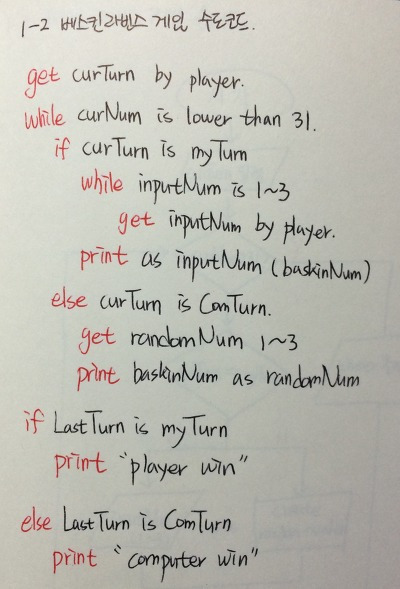 1-2 베스킨라빈스 게임 수도코드.
get curTurn by player.
while curNum is lower than 31.
if curTurn is myTurn
while inputNum is 1~3
get inputNum by player.
print as inputNum (baskinNum)
else curTurn is ComTurn.
get randomNum 1~3
print baskinNum as randomNum
if LastTurn is myTurn
print "player win"
else LastTurn is ComTurn
print "computer win"